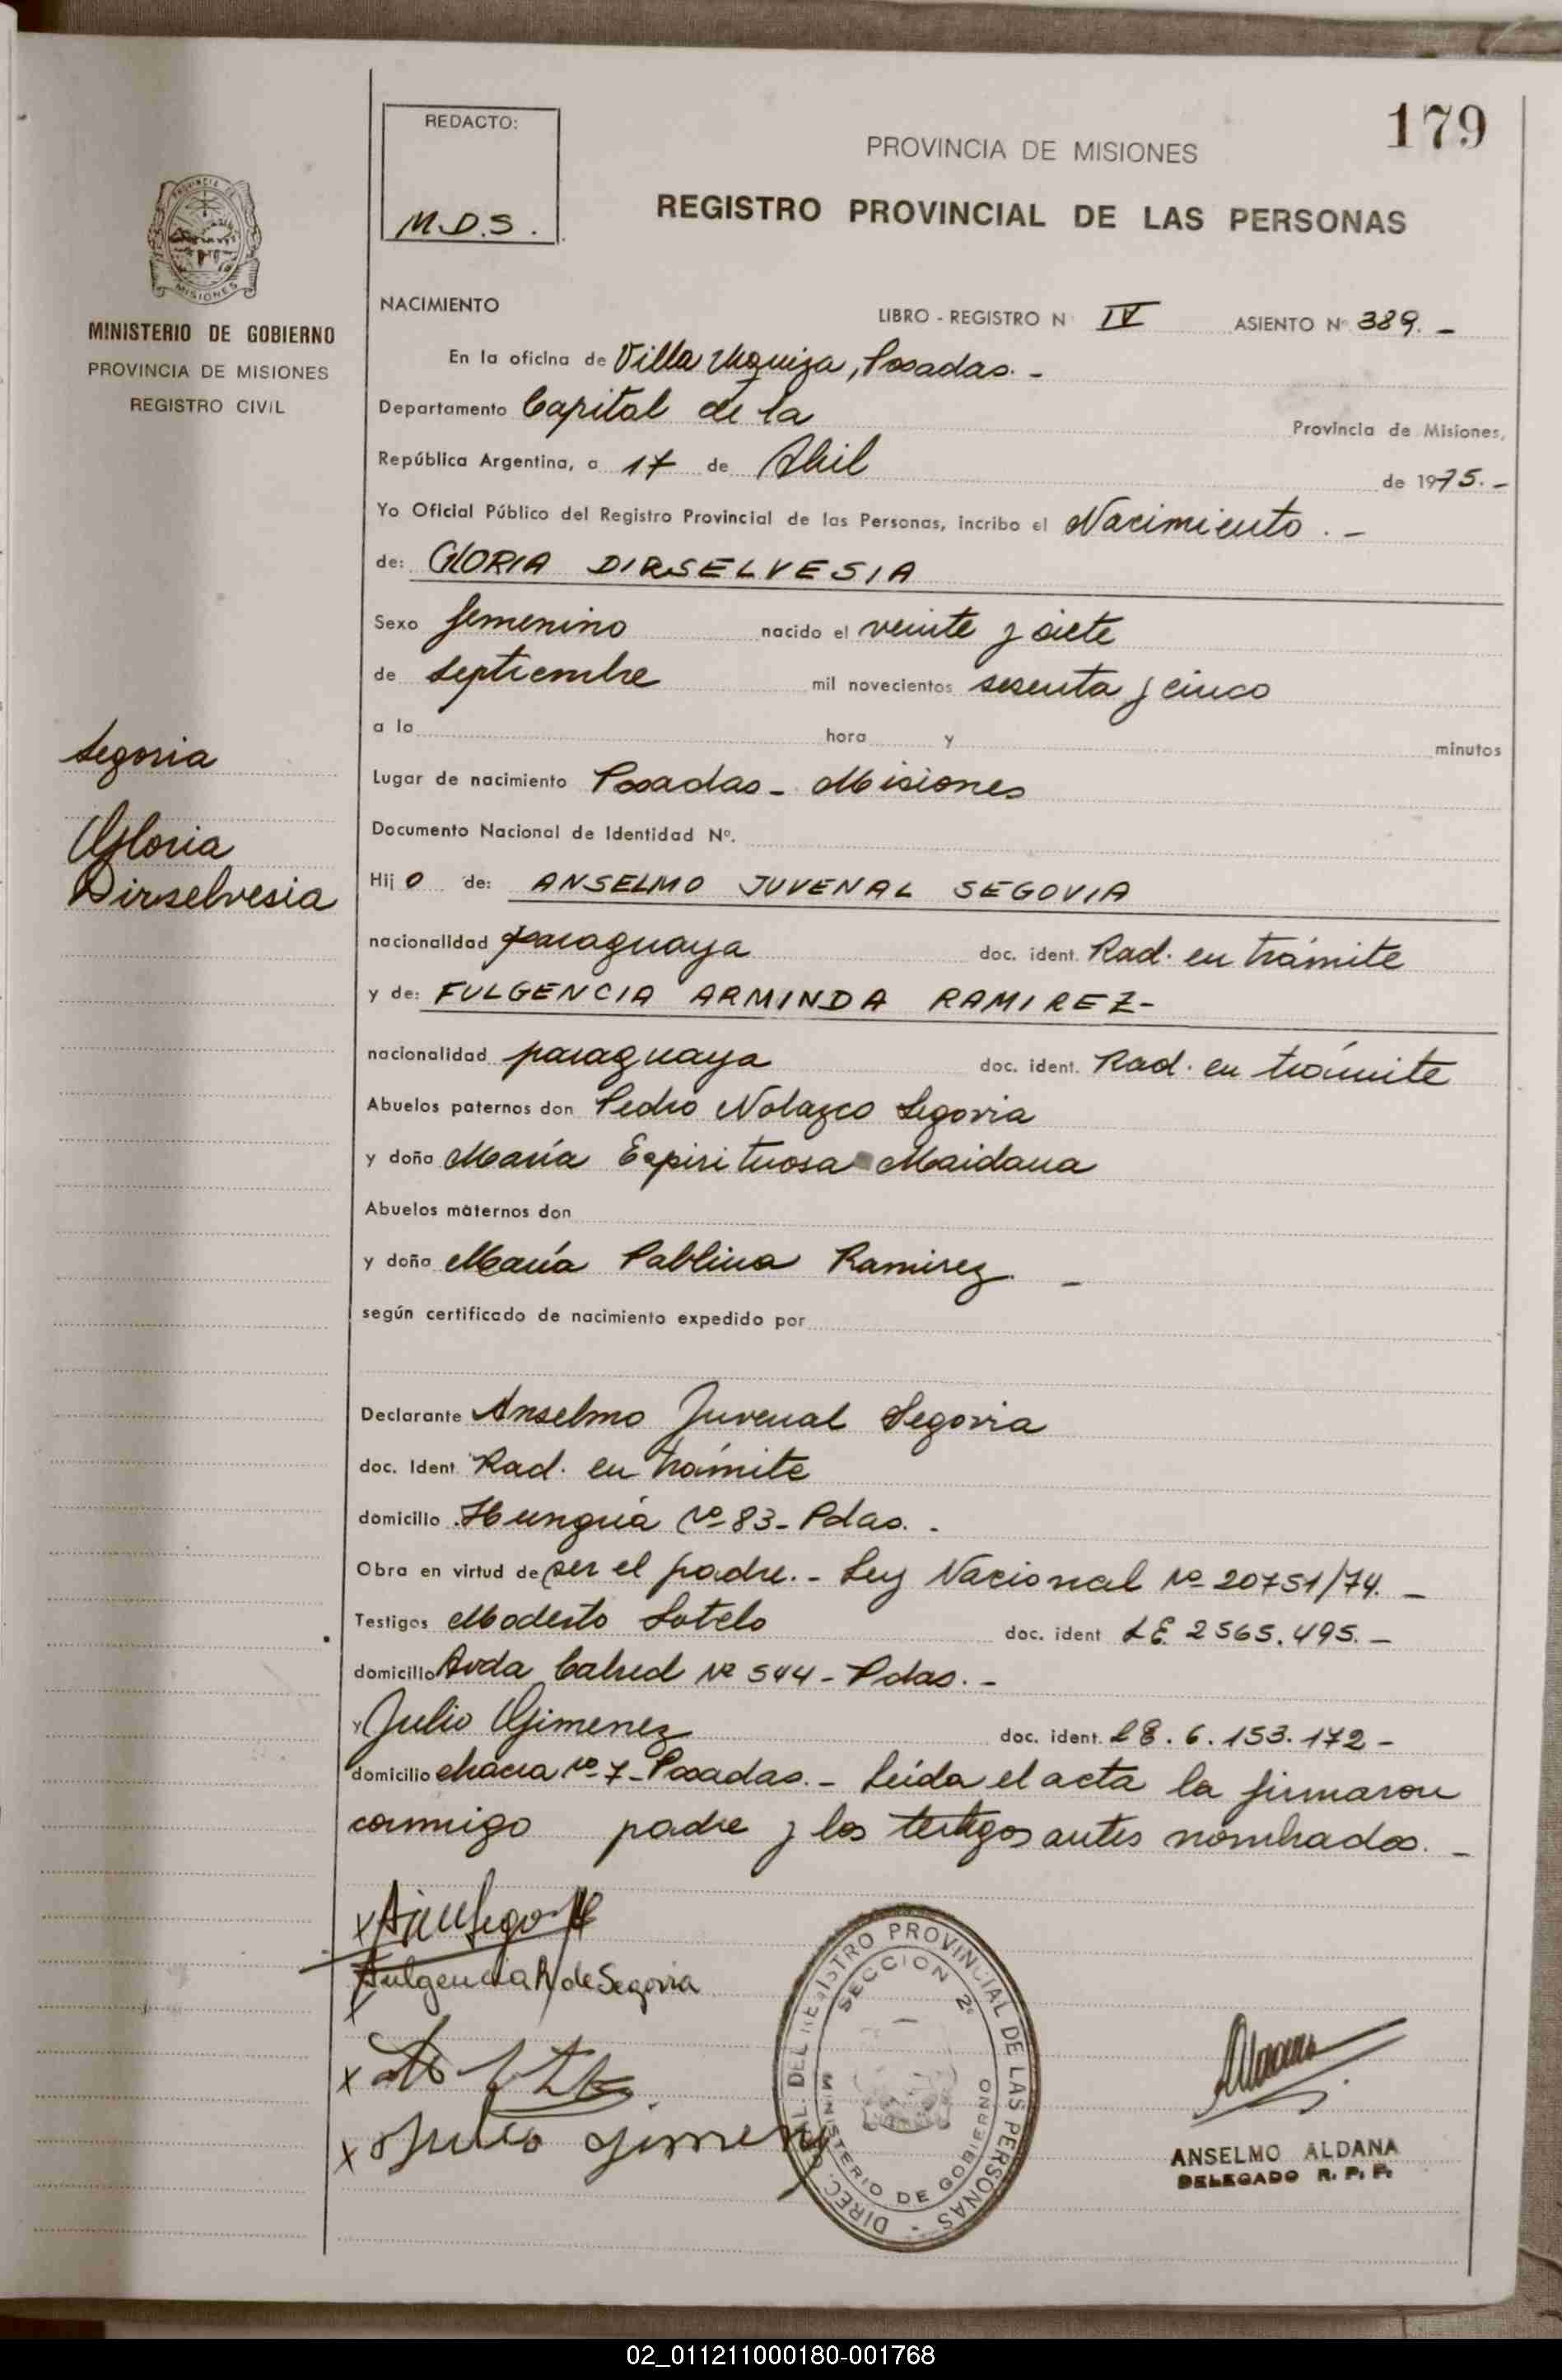 179
REDACTO:
M.D.S.
PROVINCIA DE MISIONES
REGISTRO PROVINCIAL DE LAS PERSONAS
MISIONES
MINISTERIO DE GOBIERNO
PROVINCIA DE MISIONES
REGISTRO CIVIL
NACIMIENTO LIBRO - REGISTRO N IV ASIENTO Nº 389. -
En la oficina de Villa Urquiza, Posadas. -
Departamento Capital de la Provincia de Misiones,
República Argentina, a 17 de Abril de 1975. -
Yo Oficial Público del Registro Provincial de las Personas, incribo el Nacimiento. -
de: GLORIA DIRSELVESIA
Sexo femenino nacido el veinte y siete
de septiembre mil novecientos sesenta y cinco
a la hora y minutos
Segovia
Lugar de nacimiento Posadas - Misiones
Gloria
Documento Nacional de Identidad Nº.
Dirselvesia
Hij o de: ANSELMO JUVENAL SEGOVIA
nacionalidad paraguaya doc. ident. Rad. en trámite
y de: FULGENCIA ARMINDA RAMIREZ-
nacionalidad paraguaya doc. ident. Rad. en trámite
Abuelos paternos don Pedro Nolazco Segovia
y doña María Espirituosa Maidana
Abuelos maternos don
y doña María Pablina Ramirez. -
según certificado de nacimiento expedido por
Declarante Anselmo Juvenal Segovia
doc. Ident. Rad. en trámite
domicilio Hungría Nº 83 - Pdas. -
Obra en virtud de ser el padre. - Ley Nacional Nº 20751/74. -
Testigos Modesto Sotelo doc. ident LE. 2565.495. -
domicilio Avda Cabred Nº 544 - Pdas. -
y Julio Gimenez doc. ident. LE. 6.153.172 -
domicilio chacra Nº 7 - Posadas. - Leída el acta la firmaron
conmigo padre y los testigos antes nombrados. -
Fulgencia R de Segovia
Julio Gimenez
DIREC. GRAL. DEL REGISTRO PROVINCIAL DE LAS PERSONAS -
SECCION 2º
MINISTERIO DE GOBIERNO
ANSELMO ALDANA
DELEGADO R. P. P.
02_011211000180-001768